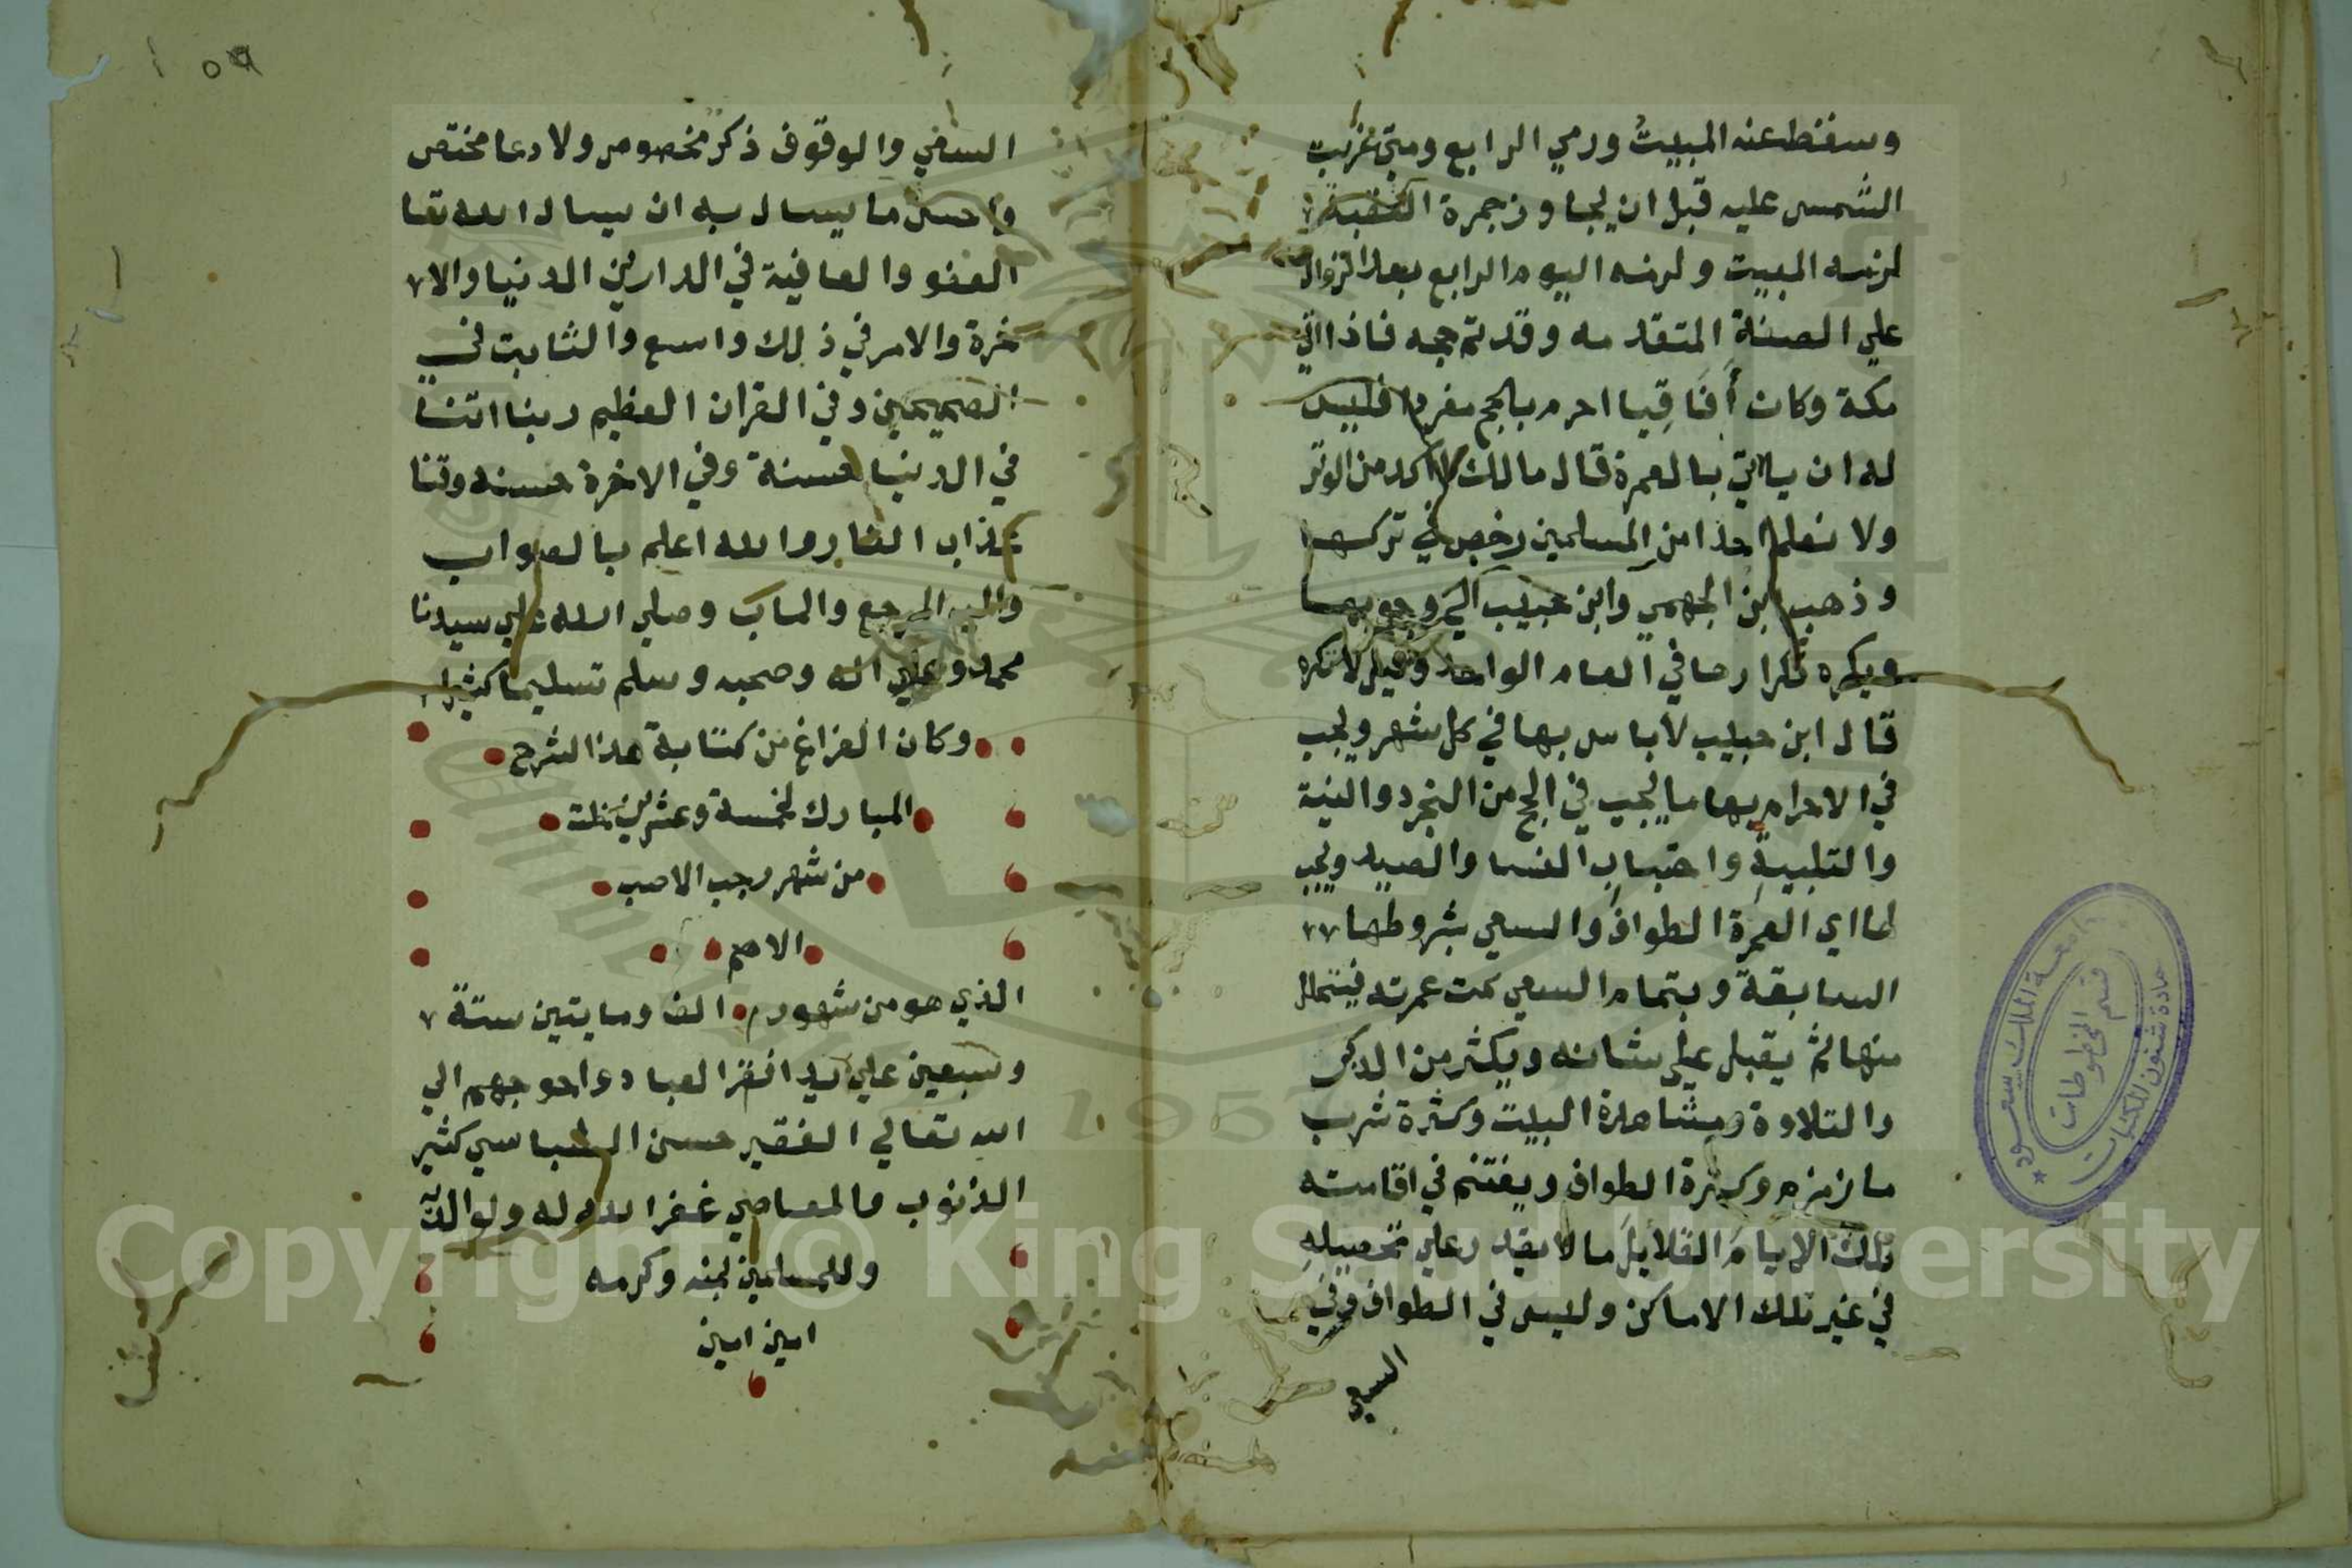 وسقط عنه المبيت ورمي الرابع ومتي غربت
الشمس عليه قبل ان يجاوز جمرة العقبة
لزمه المبيت ولزمه اليوم الرابع بعد الزوال
علي الصفة المتقدمه وقد تم حجه فاذا اتي
مكة وكان أفَاقِيا احرم بالحج مفردا فليس
له ان ياتي بالعمرة قال مالك اكد من الوتر
ولا نعلم احدا من المسلمين رخص في تركها
وذهب ابن الجهم وابن حبيب الي وجوبها
ويكره تكرارها في العام الواحد وقيل لا تكره
قال ابن حبيب لا باس بها في كل شهر ويجب
في الاحرام بها ما يجب في الحج من التجرد والنية
والتلبية واجتناب النسا والصيد ويجب
لها اي العمرة الطواف والسعي بشروطها
السابقة وبتمام السعي تمت عمرته فيتحلل
منها ثم يقبل علي شانه ويكثر من الذكر
والتلاوة ومشاهدة البيت وكثرة شرب
ماء زمزم وكثرة الطواف ويغتنم في اقامته
تلك الايام القلايل ما لا يقدر علي تحصيله
في غير تلك الاماكن وليس في الطواف وفي
السعي
١٥٩
السعي والوقوف ذكر مخصوص ولا دعا مختص
واحسن ما يسال به ان يسال الله تعا
العفو والعافية في الدارين الدنيا والا
خرة والامر في ذلك واسع والثابت في
الصحيحين وفي القران العظيم ربنا اتنا
في الدنيا حسنة وفي الاخرة حسنه وقنا
عذاب النار والله اعلم بالصواب
واليه المرجع والماب وصلي الله علي سيدنا
محمد وعلي اله وصحبه وسلم تسليما كثيرا
وكان الفراغ من كتابة هذا الشرح
المبارك لخمسة وعشرين خلت
من شهر رجب الاصب
الاصم
الذي هو من شهور الف ومايتين ستة
وسبعين علي يد افقر العباد واحوجهم الي
الله تعالي الفقير حسن العباسي كثير
الذنوب والمعاصي غفر الله له ولوالديه
وللمسلمين بمنه وكرمه
امين امين
جامعة الملك سعود
قسم المخطوطات
عمادة شئون المكتبات
1957
Copyright © King Saud University